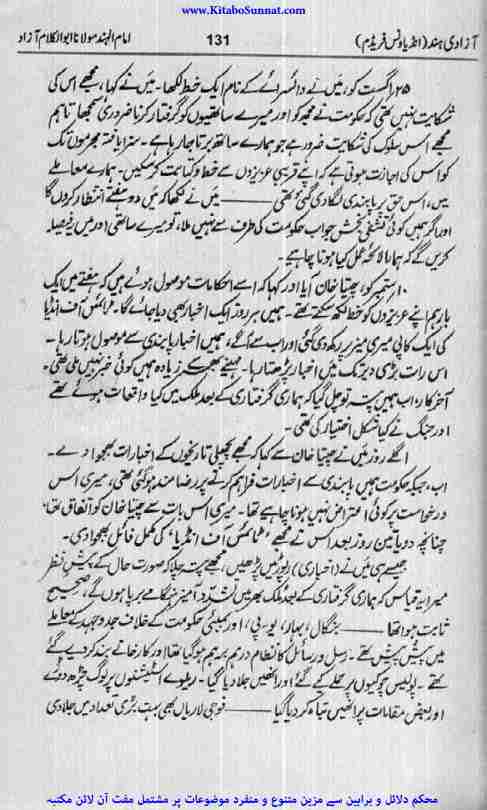 www.KitaboSunnat.com
آزادی ہند (انڈیا ونس فریڈم) 131 امام الہند مولانا ابوالکلام آزاد
۲۵ اگست کو، میں نے وائسرائے کے نام ایک خط لکھا۔ میں نے کہا، مجھے اس کی
شکایت نہیں تھی کہ حکومت نے مجھ کو اور میرے ساتھیوں کو گرفتار کرنا ضروری سمجھا تاہم
مجھے اس سلوک کی شکایت ضرور ہے جو ہمارے ساتھ برتا جا رہا ہے۔ سزا یافتہ مجرموں تک
کو اس کی اجازت ہوتی ہے کہ اپنے قریبی عزیزوں سے خط و کتابت کر سکیں۔ ہمارے معاملے
میں، اس حق پر پابندی لگا دی گئی تھی ——— میں نے لکھا کہ میں دو ہفتے انتظار کروں گا
اور اگر ہمیں کوئی تشفی بخش جواب حکومت کی طرف سے نہیں ملا، تو میرے ساتھی اور میں فیصلہ
کریں گے کہ ہمارا لائحہ عمل کیا ہونا چاہیے۔
۱۰ ستمبر کو، چیتا خان آیا اور کہا کہ اسے احکامات موصول ہوئے ہیں کہ ہفتے میں ایک
بار ہم اپنے عزیزوں کو خط لکھ سکتے تھے۔ ہمیں ہر روز ایک اخبار بھی دیا جائے گا۔ ٹائمس آف انڈیا
کی ایک کاپی میری میز پر رکھ دی گئی اور اب سے آگے، ہمیں اخبار پابندی سے موصول ہوتا رہا۔
اس رات بڑی دیر تک میں اخبار پڑھتا رہا۔ مہینے بھر سے زیادہ ہمیں کوئی خبر نہیں ملی تھی۔
آخر کار، اب ہمیں پتہ چل گیا کہ ہماری گرفتاری کے بعد ملک میں کیا واقعات ہوئے تھے
اور جنگ نے کیا شکل اختیار کی تھی۔
اگلے روز میں نے چیتا خان سے کہا کہ مجھے پچھلی تاریخوں کے اخبارات بھجوا دے۔
اب، جبکہ حکومت ہمیں پابندی سے اخبارات فراہم کرنے پر رضامند ہو گئی تھی، میری اس
درخواست پر کوئی اعتراض نہیں ہونا چاہیے تھا۔ میری اس بات سے چیتا خان کو اتفاق تھا
چنانچہ دو یا تین روز بعد اس نے مجھے 'ٹائمس آف انڈیا' کی مکمل فائل بھجوا دی۔
جیسے ہی میں نے (اخباری) رپورٹیں پڑھیں، مجھے پتہ چلا کہ صورت حال کے پیش نظر
میرا یہ قیاس کہ ہماری گرفتاری کے بعد ملک بھر میں تشدد آمیز ہنگامے برپا ہوں گے، صحیح
ثابت ہوا تھا ——— بنگال، بہار، یو۔پی، اور بمبئی حکومت کے خلاف جدوجہد کے معاملے
میں پیش پیش تھے۔ رسل و رسائل کا نظام درہم برہم ہو گیا تھا اور کارخانے بند کر دیے گئے
تھے۔ پولیس چوکیوں پر حملے کیے گئے اور انھیں جلا دیا گیا۔ ریلوے اسٹیشنوں پر لوگ چڑھ دوڑے
اور بعض مقامات پر انھیں تباہ کر دیا گیا ——— فوجی لاریاں بھی بہت بڑی تعداد میں جلا دی
محکم دلائل و براہین سے مزین متنوع و منفرد موضوعات پر مشتمل مفت آن لائن مکتبہ